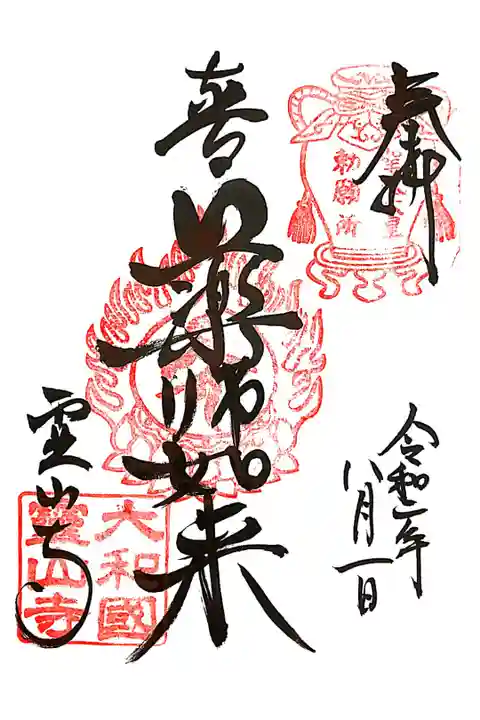 奉拝
勅願所
薬師如来
令和一年
八月一日
霊山寺
大和國
靈山寺